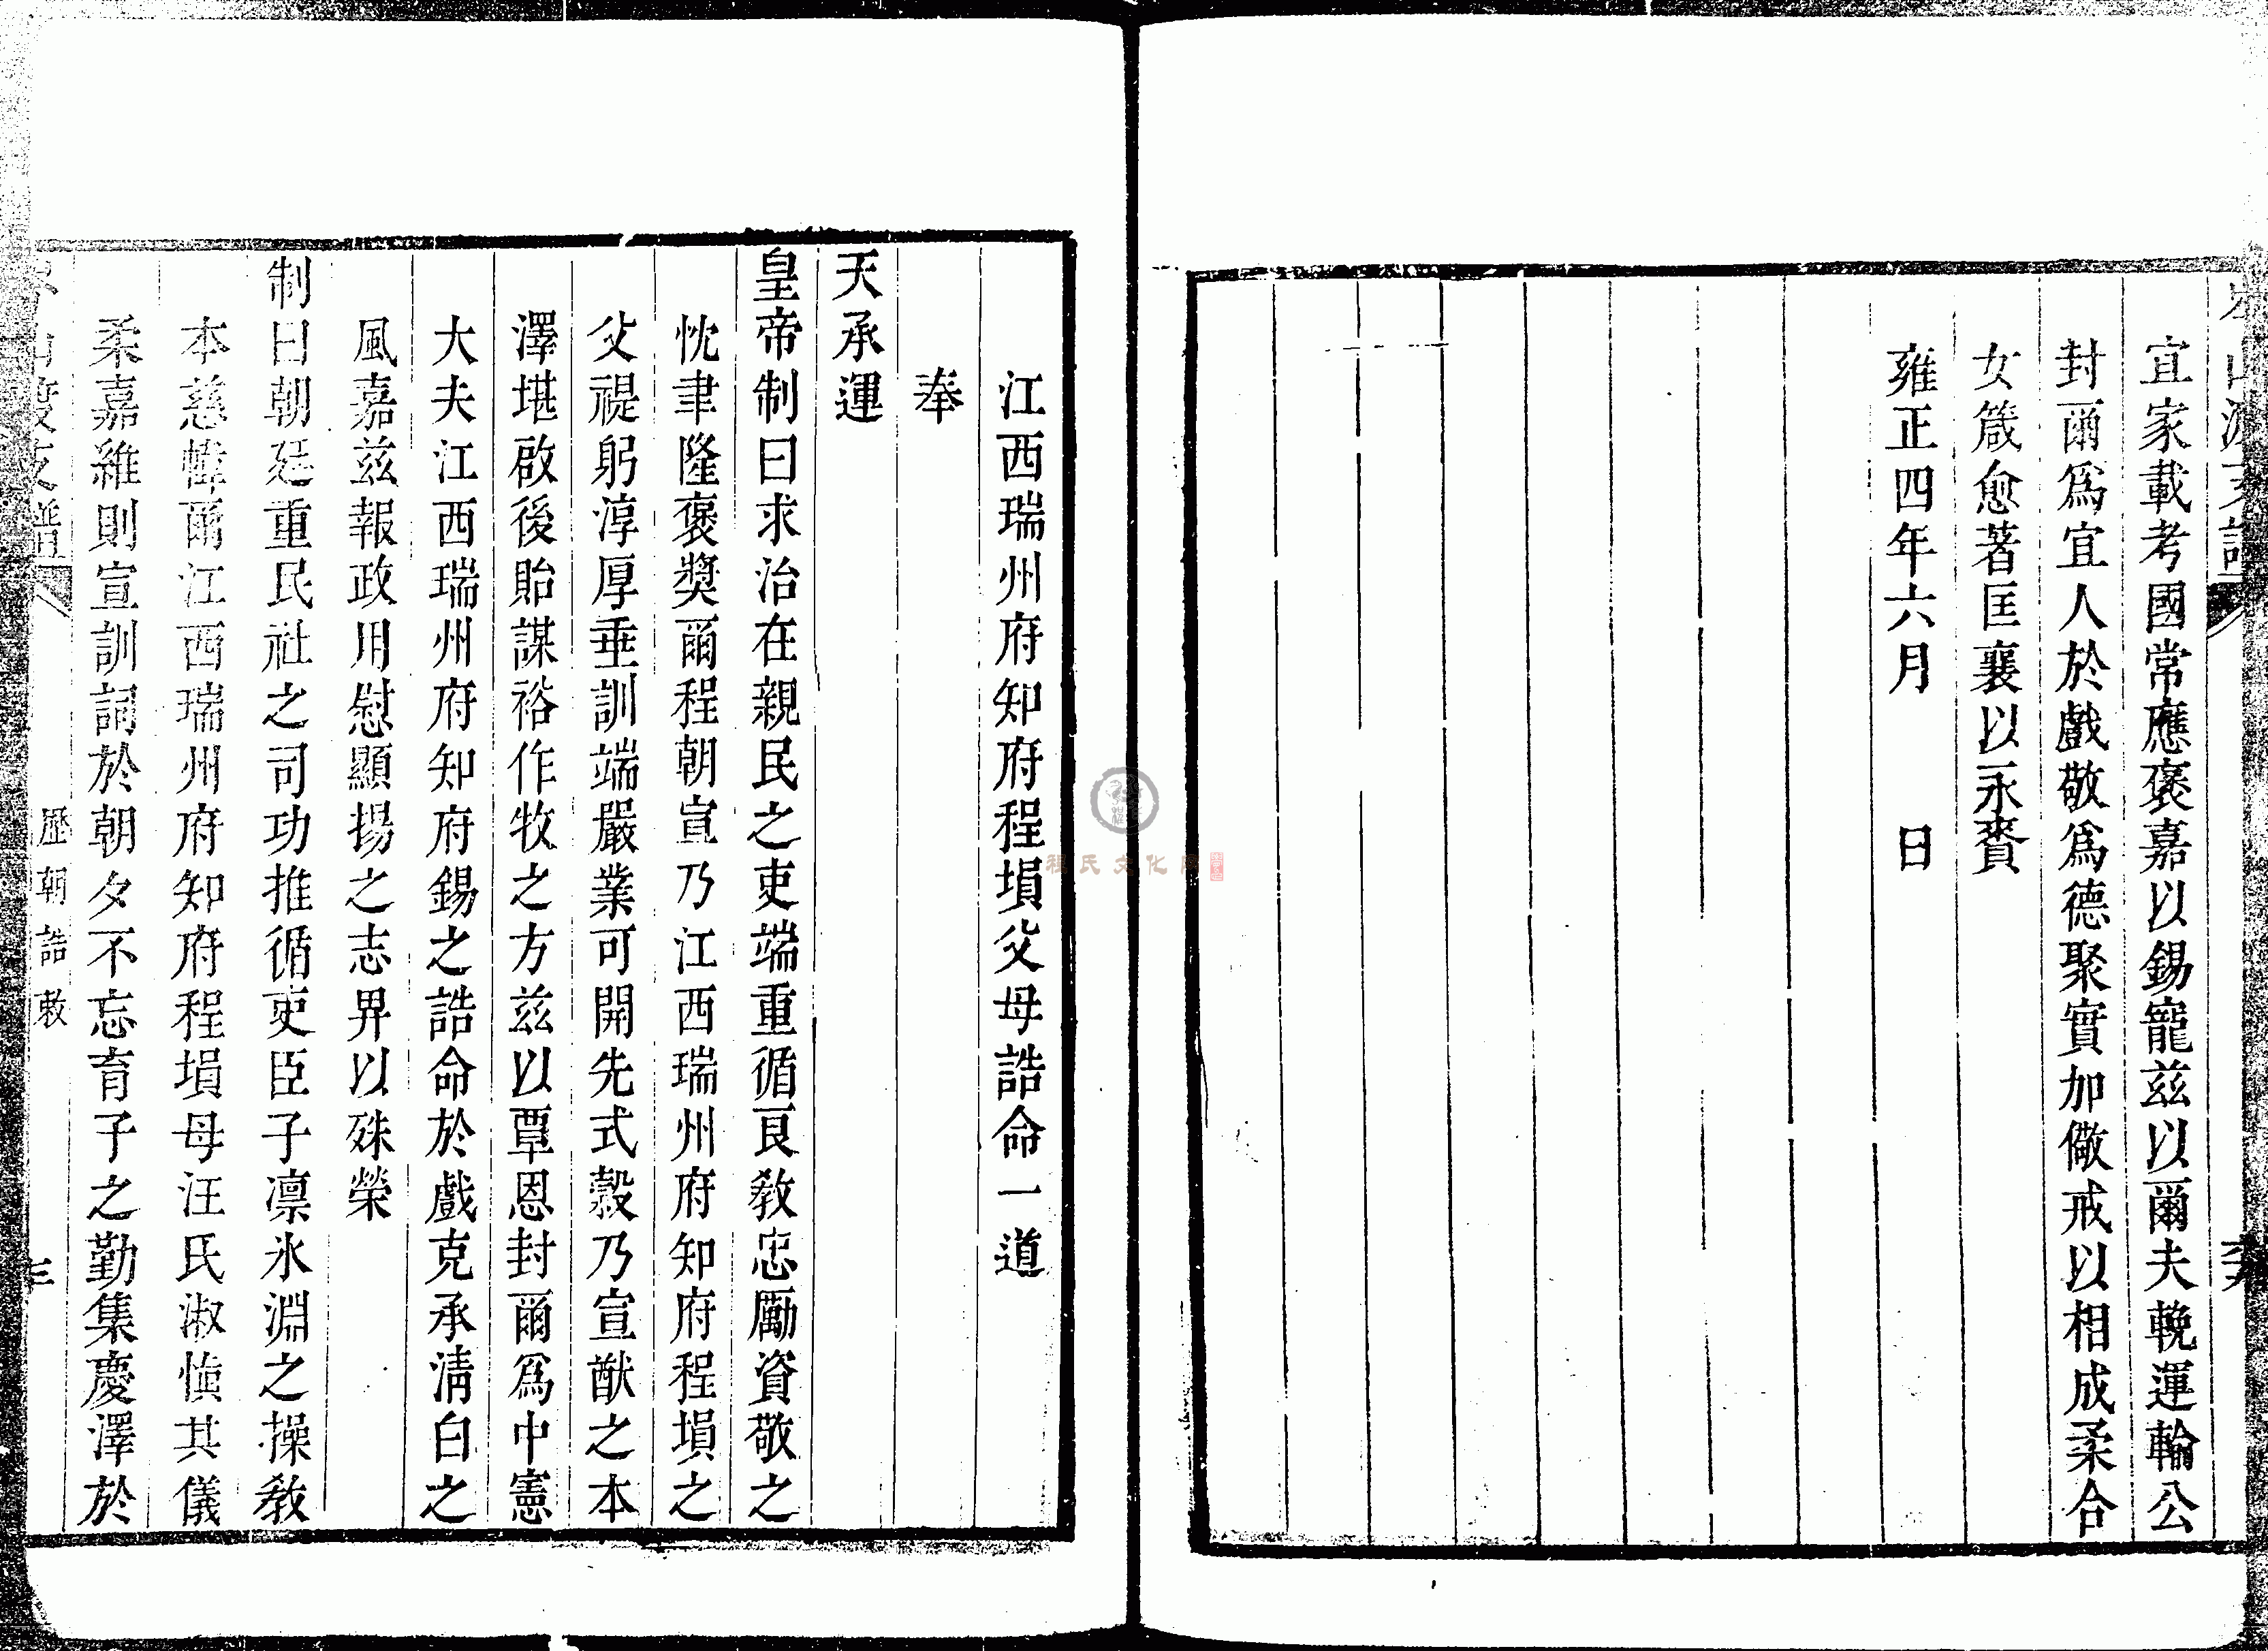 宜家載考國常應褒嘉以錫寵兹以爾夫輓運輸公
封爾爲宜人於戲敬爲德聚實加儆戒以相成柔合
女箴愈著匡襄以永賚
雍正四年六月　日
江西瑞州府知府程塤父母誥命一道
奉
天承運
皇帝制曰求治在親民之吏端重循良敎忠勵資敬之
忱聿隆褒奬爾程朝宣乃江西瑞州府知府程塤之
父禔躬淳厚垂訓端嚴業可開先式穀乃宣猷之本
澤堪啟後貽謀裕作牧之方兹以覃恩封爾爲中憲
大夫江西瑞州府知府錫之誥命於戲克承淸白之
風嘉兹報政用慰顯揚之志畀以殊榮
制曰朝廷重民社之司功推循吏臣子凛氷淵之操敎
本慈幃爾江西瑞州府知府程塤母汪氏淑愼其儀
柔嘉維則宣訓詞於朝夕不忘育子之勤集慶澤於
歷朝誥敕
三
程氏文化